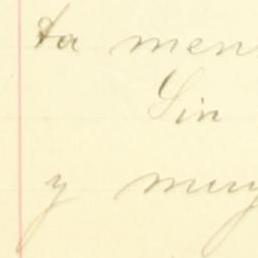 ta men
Sin
y muy